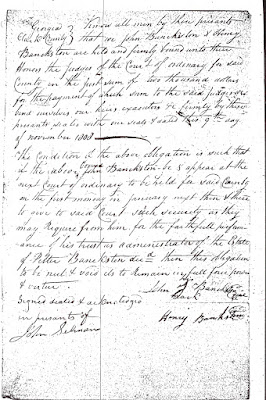 Georgia Know all men by these presents
County that we John Bankston & Henry
Bankston are held and firmly bound unto there
Honors the Judges of the Court of ordinary for said
County in the just sum of two thousand dollars
for the payment of which sum to the said Judges we
bind ourselves our heirs executors & firmly by these
presents sealed with our seals & dated this 9th day
of november 1808
The Condition of the above obligation is such that
if the above bound John Bankston do appear at the
next Court of ordinary to be held for said County
on the first monday in january next then & there
to give to said Court such security as they
may require from him for the faithfull perform-
ance of his trust as administrator of the Estate
of Petter Banckston decd then this obligation
to be null & void els to remain in full force power
& virtue
John Banckston
mark
Signed sealed & acknowledged
in presents of Henry Bankston
John